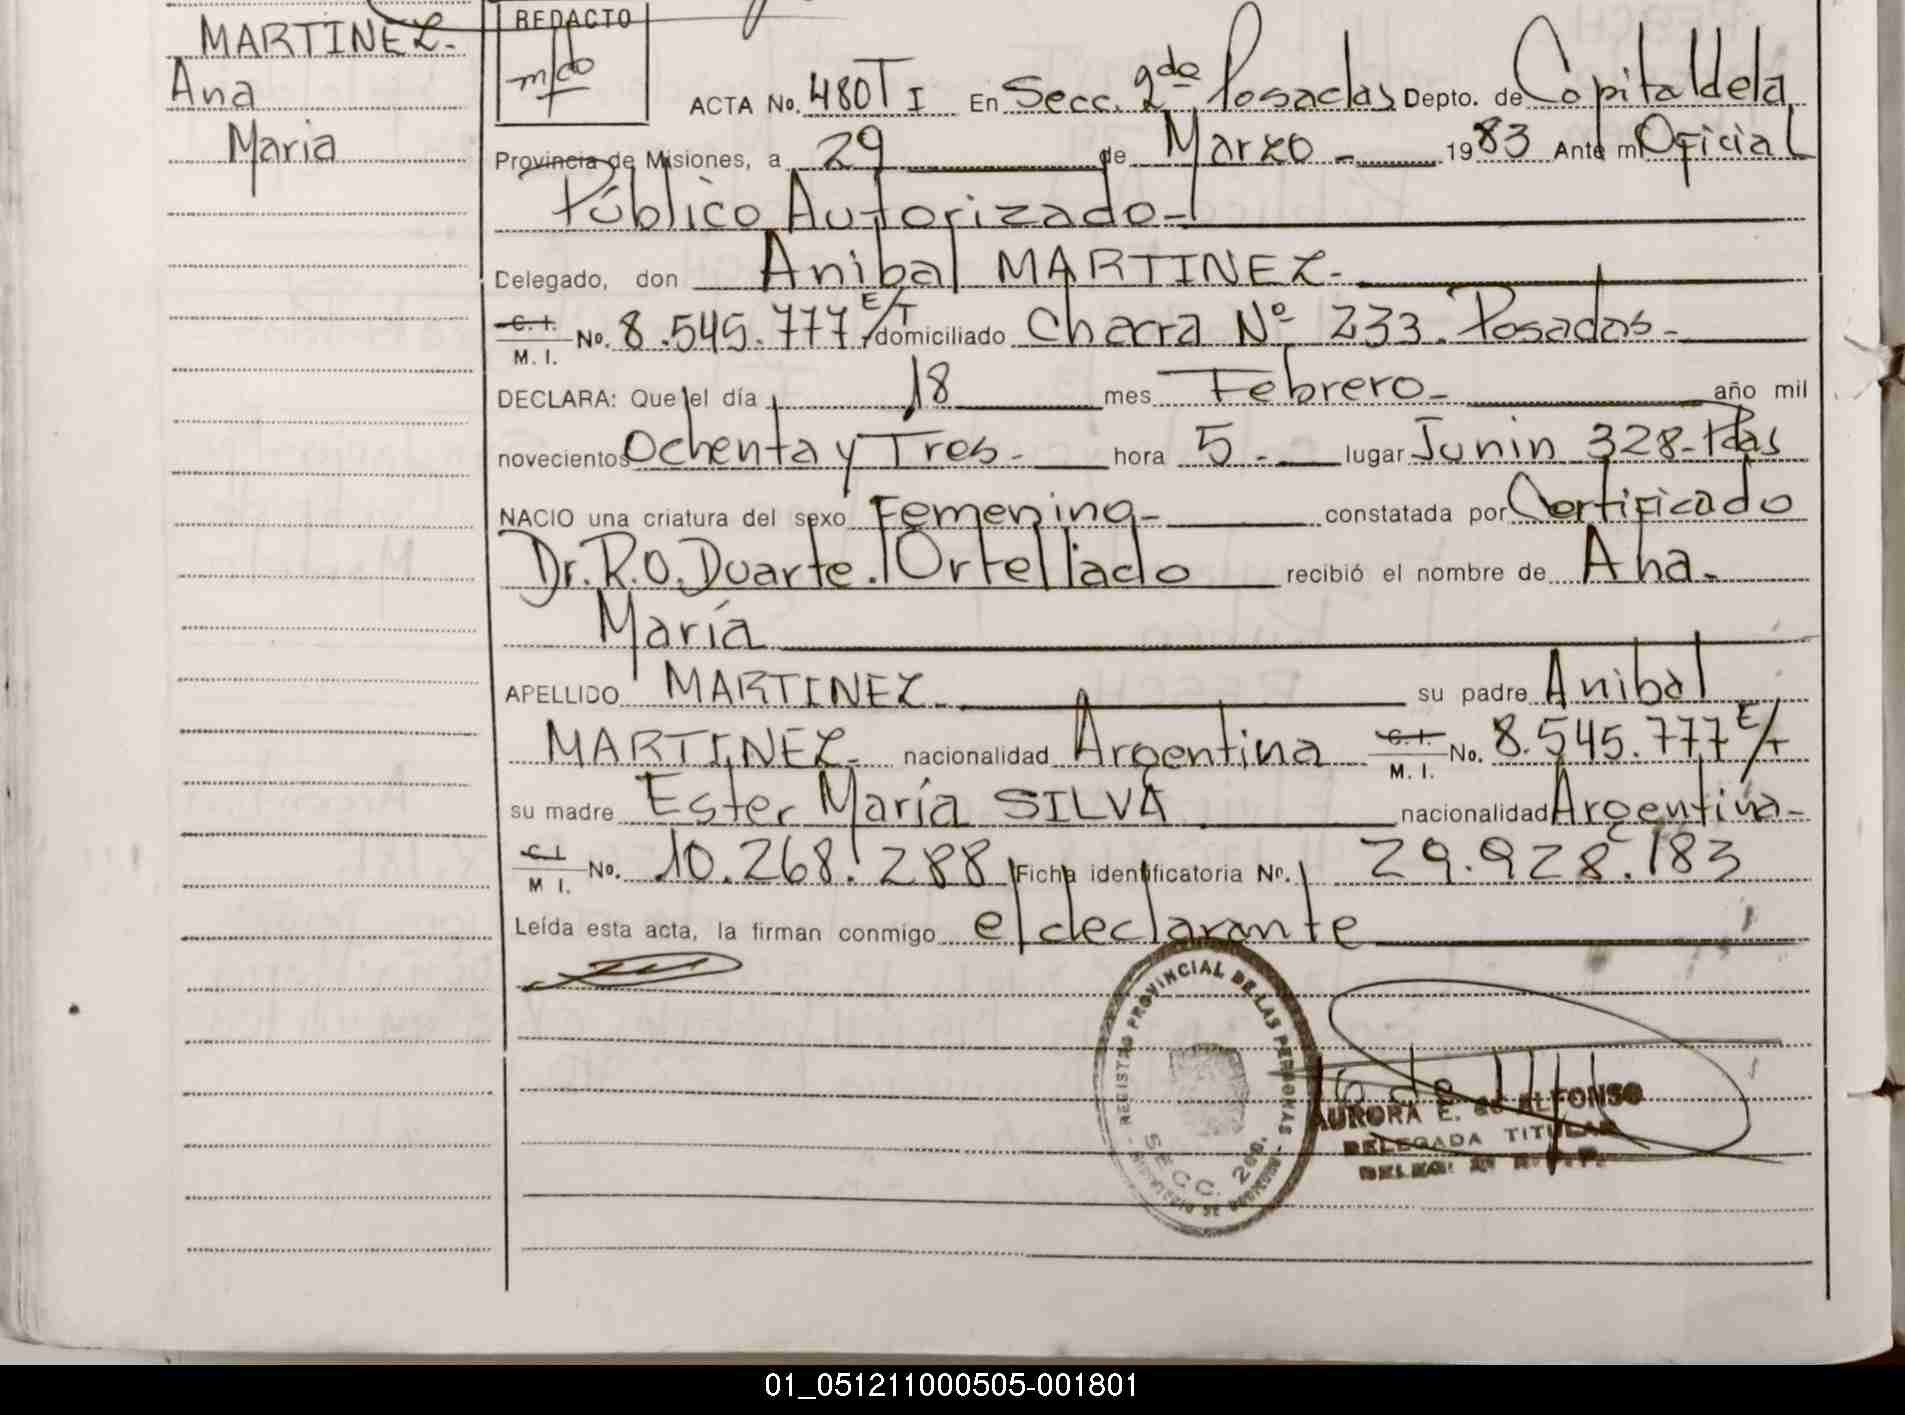 MARTINEZ.-
Ana
Maria
REDACTO
ACTA No. 480 T I En Secc. 2da Posadas Depto. de Capital de la
Provincia de Misiones, a 29 de Marzo - 1983 Ante mi Oficial
Público Autorizado-
Delegado, don Anibal MARTINEZ.-
C. I. / M. I. No. 8.545.777 E/T domiciliado Chacra Nº 233. Posadas.-
DECLARA: Que el día 18 mes Febrero - año mil
novecientos Ochenta y Tres.- hora 5.- lugar Junin 328-Pdas
NACIO una criatura del sexo Femenino- constatada por Certificado
Dr. R.O. Duarte. Ortellado recibió el nombre de Ana.
María
APELLIDO MARTINEZ.- su padre Anibal
MARTINEZ.- nacionalidad Argentina C. I. / M. I. No. 8.545.777 E/T
su madre Ester María SILVA nacionalidad Argentina-
C I. / M I. No. 10.268.288 Ficha identificatoria Nº. 29.928.183
Leída esta acta, la firman conmigo el declarante
REGISTRO PROVINCIAL DE LAS PERSONAS
SECC. 2da.
AURORA E. de ALFONSO
DELEGADA TITULAR
01_051211000505-001801